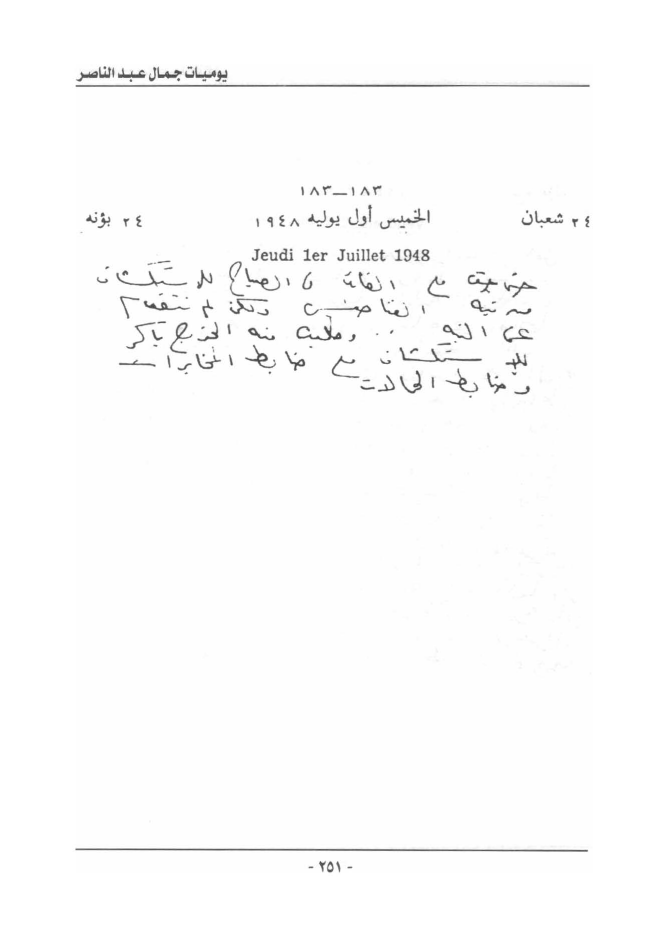 يوميات جمال عبد الناصر
١٨٣—١٨٣
٢٤ شعبان الخميس أول يوليه ١٩٤٨ ٢٤ بؤنه
Jeudi 1er Juillet 1948
خرجت مع القائد في الصباح للاستكشاف
من تبه ولكن لم نتقدم
عن التبه .. وطلبت منه الخروج باكر
للاستكشاف مع ضابط المخابرات
وضابط الحملات
- ٢٥١ -